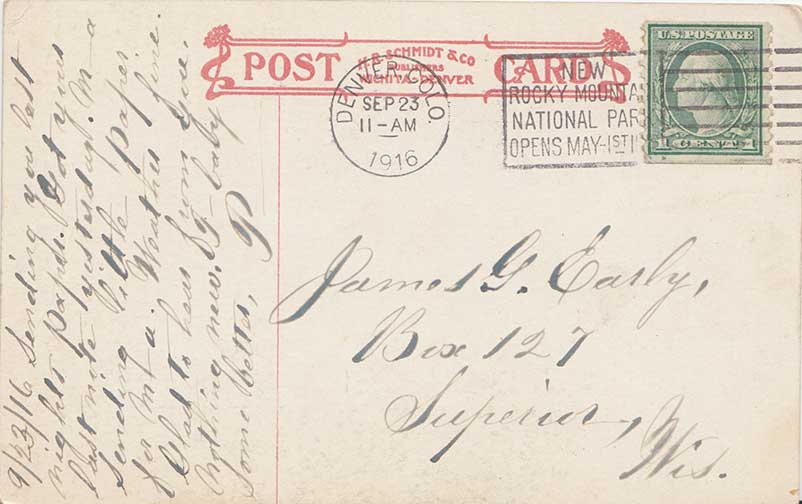 POST CARD
H.B. SCHMIDT & CO
PUBLISHERS
WICHITA-DENVER
DENVER, COLO.
SEP 23
11-AM
1916
NEW
ROCKY MOUNTA
NATIONAL PAR
OPENS MAY-1ST
U.S. POSTAGE
1 CENT 1
9/23/16 Sending you last
nights paper. Got yours
last nite yesterday. M a
Sending little paper
for M a. Weather fine.
Glad to hear from you.
Nothing new. J. baby
some better, P
James G. Early,
Box 127
Superior,
Wis.